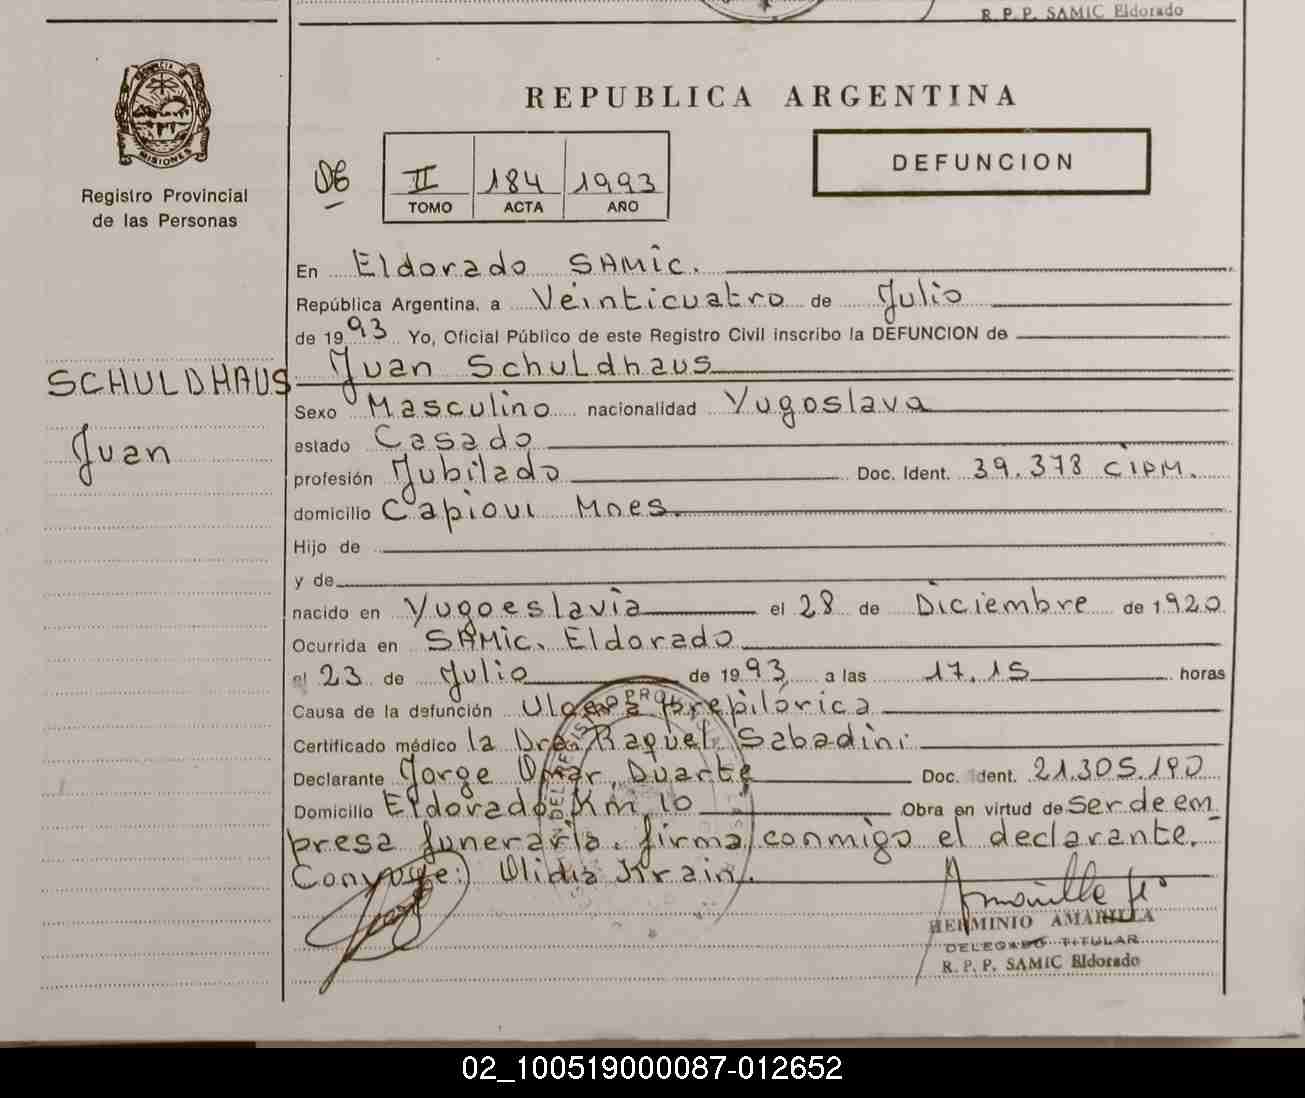 R. P. P. SAMIC Eldorado
PROVINCIA DE
MISIONES
Registro Provincial
de las Personas
REPUBLICA ARGENTINA
DEFUNCION
II 184 1993
TOMO ACTA AÑO
En Eldorado SAMic.
República Argentina, a Veinticuatro de Julio
de 1993 Yo, Oficial Público de este Registro Civil inscribo la DEFUNCION de
SCHULDHAUS
Juan
Juan Schuldhaus
Sexo Masculino nacionalidad Yugoslava
estado Casado
profesión Jubilado Doc. Ident. 39.378 CIPM.
domicilio Capiovi Mnes.
Hijo de
y de
nacido en Yugoeslavia el 28 de Diciembre de 1.920
Ocurrida en SAMic. Eldorado
el 23 de Julio de 1993, a las 17.15 horas
Causa de la defunción Ulcera prepilórica
Certificado médico la Dra. Raquel Sabadini
Declarante Jorge Omar Duarte Doc. Ident. 21.305.190
Domicilio Eldorado Km 10 Obra en virtud de ser de em
presa funeraria. firma conmigo el declarante.
Conyuge: Olidia Krain.
HERMINIO AMARILLA
DELEGADO TITULAR
R. P. P. SAMIC Eldorado
02_100519000087-012652